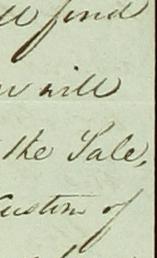 find
will
the Sale,
Custom of